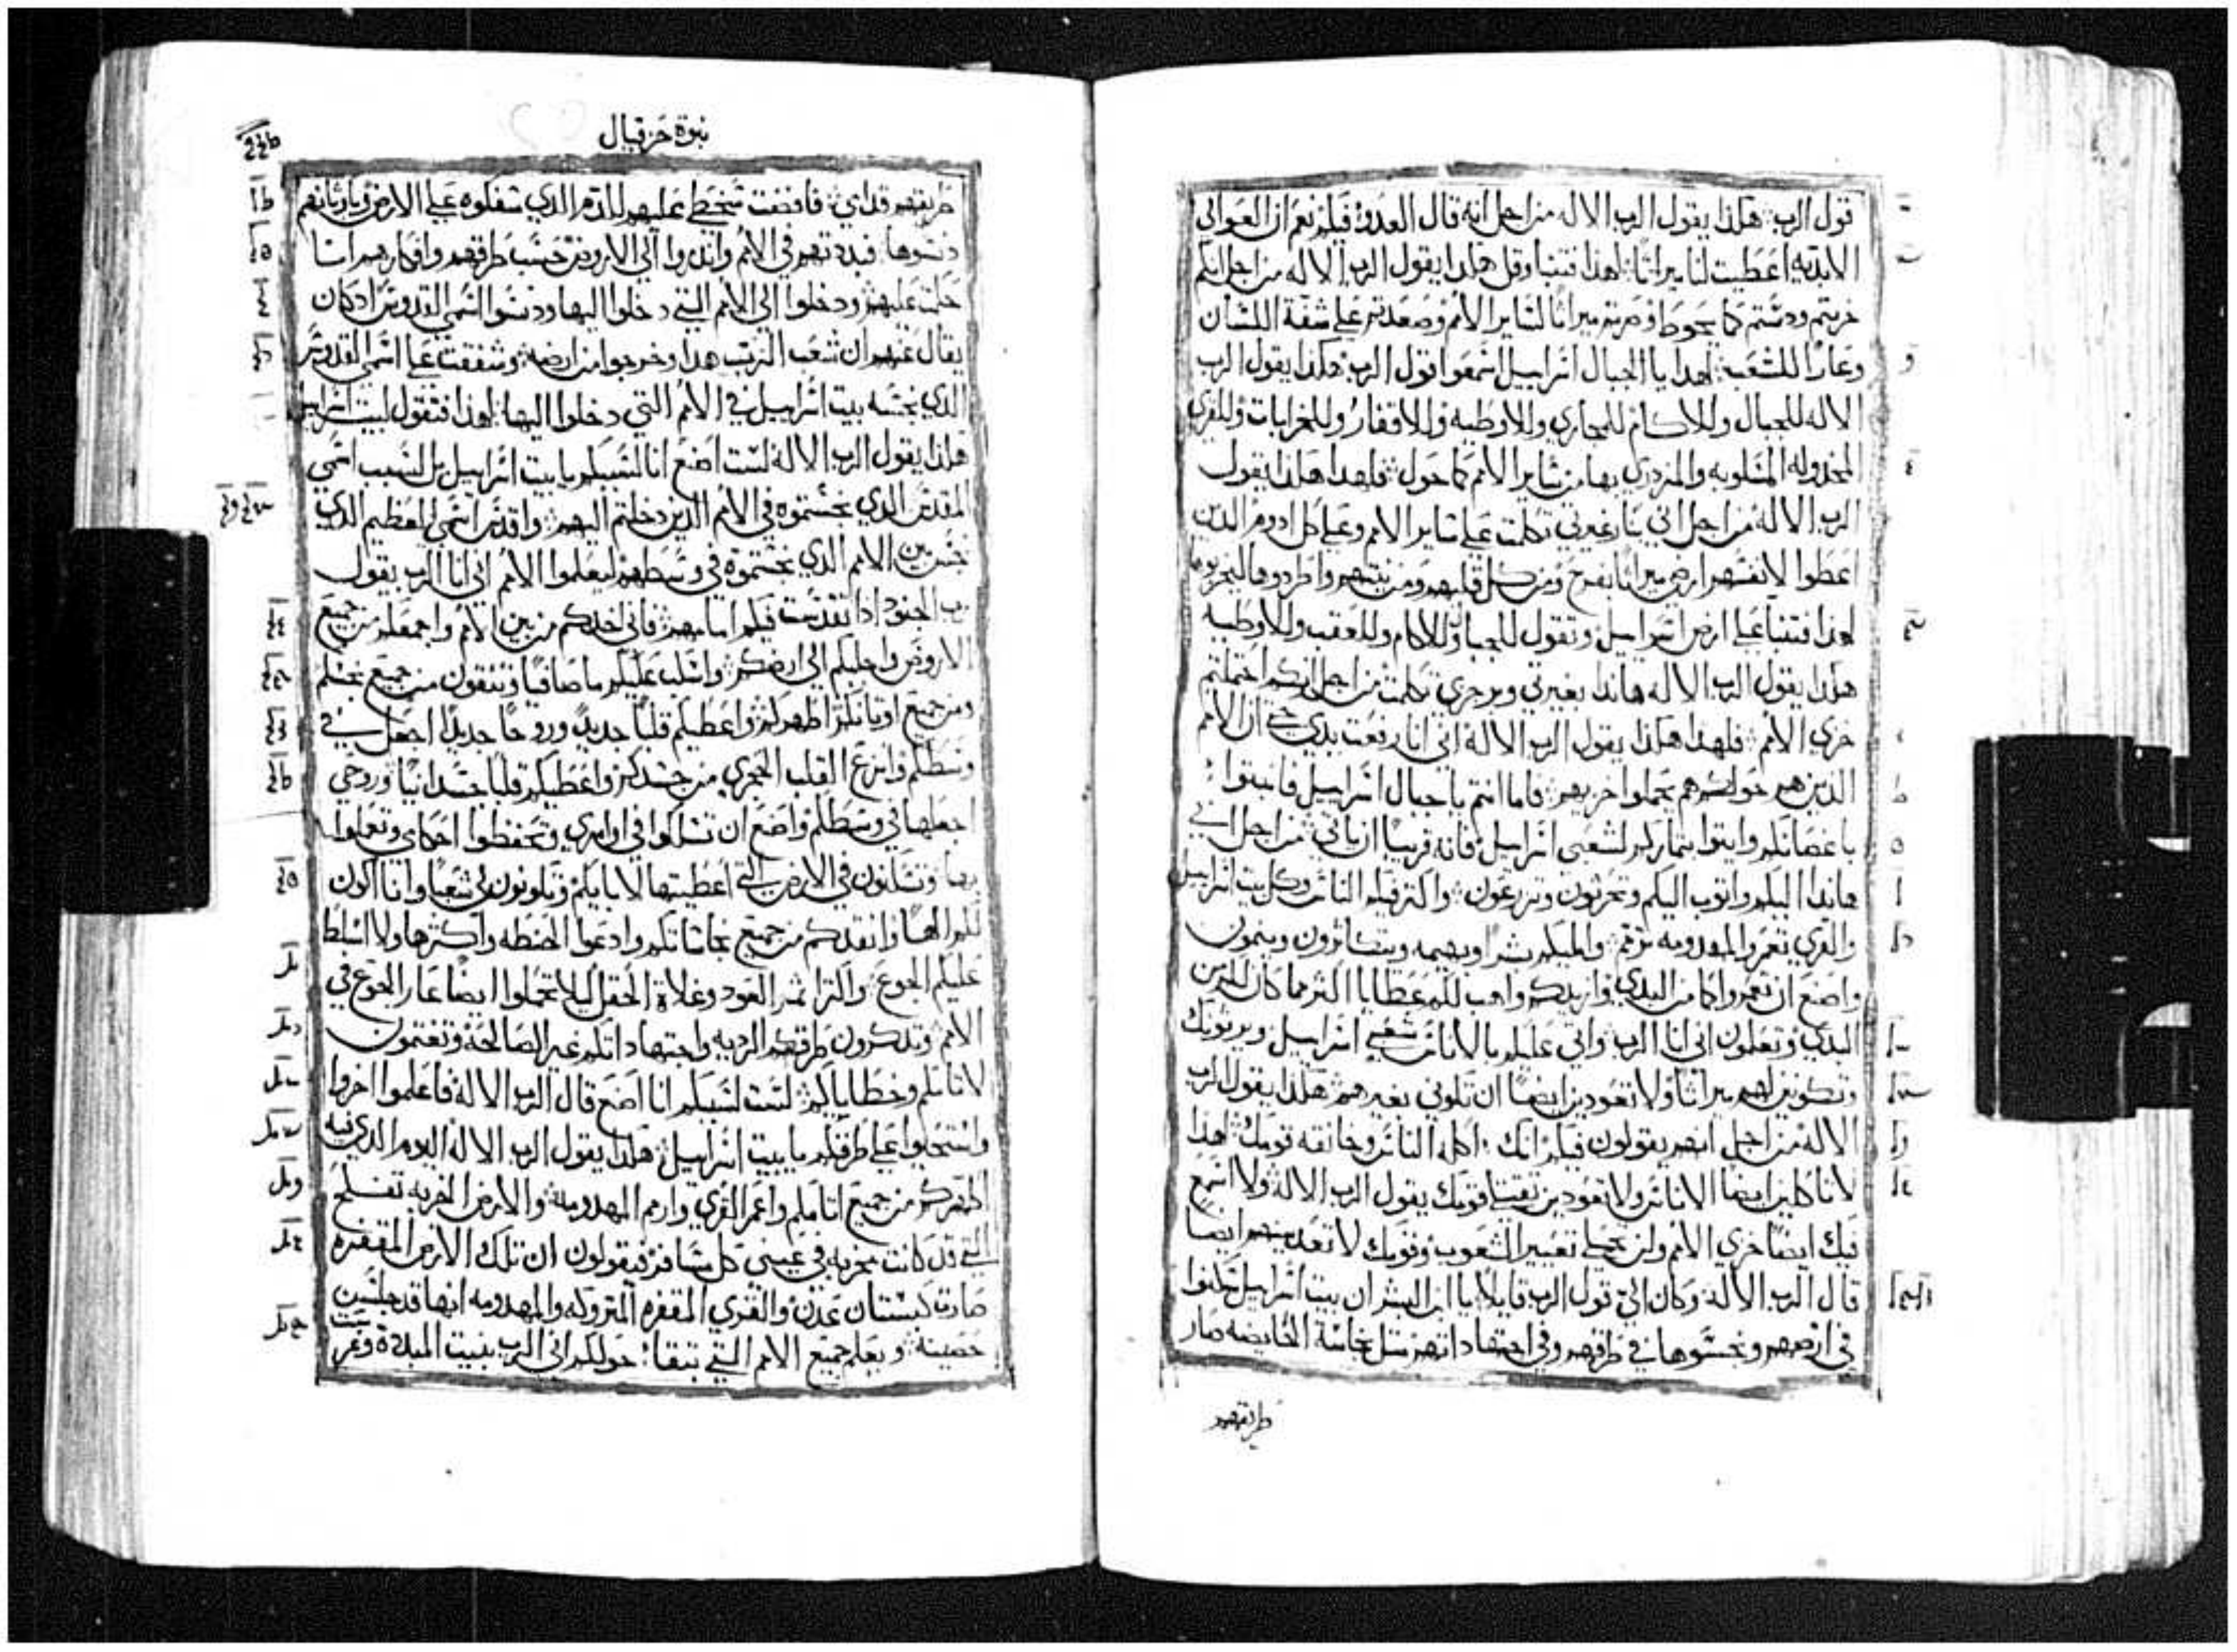 قول الرب هكذا يقول الرب الاله من اجل انه قال العدو فيكم نعم ان العوالي
الابديه اعطيت لنا ميراثا لهذا فتنبا وقل هكذا يقول الرب الاله من اجل انكم
خربتم ودستم كما يحوط وصرتم ميراثا لساير الامم وصعدتم على شفة اللسان
وعارا للشعب لهذا يا الجبال اسراييل اسمعوا قول الرب هكذا يقول الرب
الاله للجبال وللاكام للمجاري وللاوطيه وللاقفار وللخرابات وللقري
المخدوله المسلوبه والمزدري بها من ساير الامم كما حول فلهدا هكذا يقول
الرب الاله من اجل اني بنار غيرتي تكلمت على ساير الامم وعلى كل ادوم الدين
اعطوا لانفسهم ارضي ميراثا بفرح ومن كل قلبهم ومن نيتهم واطردوها ليخربوها
لهذا فتنبا على ارض اسراييل وتقول للجبال وللاكام وللعقب وللاوطيه
هكذا يقول الرب الاله هاندا بغيرتي وبرجزي تكلمت من اجل انكم احتملتم
خزي الامم فلهذا هكذا يقول الرب الاله اني انا رفعت يدي حتى ان الامم
الذين هم حولكم هم يحملوا خزيهم فاما انتم يا جبال اسراييل فانبتوا
باغصانكم وايتوا بثماركم لشعبي اسراييل فانه قريبا ان ياتي من اجل اني
هاندا اليكم واتوب اليكم وتحرثون وتزرعون واكثر فيكم الناس وكل بيت اسراييل
والقري تعمر والمهدومه ترمم واملیكم بشرا وبهيمه ويتكاثرون وينمون
واصنع ان تعمروا كما من البدي وازيدكم واهب لكم عطايا اكثر مما كان لكم من
البدي وتعلمون اني انا الرب واتي عليكم بالاناس شعبي اسراييل ويرثونك
وتكونين لهم ميراثا ولا تعودين ايضا ان تكوني بغيرهم هكذا يقول الرب
الاله من اجل انهم يقولون فيكم انك اكلة الناس وخانقه قومك لهذا
لا تاكلين ايضا الاناس ولا تعودين تقتلي قومك يقول الرب الاله ولا اسمع
فيك ايضا خزي الامم ولن تحملي تعيير الشعوب وقومك لا تعدميهم ايضا
قال الرب الاله وكان الي قول الرب قايلا يا ابن البشر ان بيت اسراييل سكنوا
في ارضهم ونجسوها في طرقهم وفي اجتهاداتهم مثل نجاسة الحايضه صار
طريقهم
نبوة حزقيال
طريقهم قدامي فافضت سخطي عليهم للدم الدي سفكوه على الارض وباوثانهم
دنسوها فبددتهم في الامم واندروا الي الاروض حسب طرقهم وافكارهم
حكمت عليهم ودخلوا الي الامم التي دخلوا اليها ودنسوا اسمي القدوس ادكان
يقال عنهم ان شعب الرب هدا وخرجوا من ارضه وشفقت على اسمي القدوس
الدي نجسه بيت اسراييل في الامم التي دخلوا اليها لهذا فتقول لبيت اسراييل
هكذا يقول الرب الاله لست اصنع انا لسببكم يا بيت اسراييل بل لسبب اسمي
المقدس الدي نجستموه في الامم الدين دخلتم اليهم واقدس اسمي العظيم الدي
نجس بين الامم الدي نجستموه في وسطهم ليعلموا الامم اني انا الرب يقول
رب الجنود ادا تقدست فيكم امامهم فاني اخدكم من بين الامم واجمعكم من جميع
الاروض واجليكم الي ارضكم واسكب عليكم ما صافيا وتنقون من جميع نجسكم
ومن جميع اوثانكم اطهركم واعطيكم قلبا جديدا وروحا جديدا اجعل في
وسطكم وانزع القلب الحجري من جسدكم واعطيكم قلبا جسدانيا وروحي
اجعلها في وسطكم واصنع ان تسلكوا في اوامري وتحفظوا احكامي وتعملوا
بها وتسكنون في الارض التي اعطيتها لابايكم وتكونون لي شعبا وانا اكون
لكم الها وانقدكم من جميع نجاساتكم وادعوا الحنطه واكثرها ولا اسلط
عليكم الجوع واكثر ثمر العود وغلاة الحقل ليلا تحملوا ايضا عار الجوع في
الامم وتدكرون طرقكم الرديه واجتهاداتكم غير الصالحة وتغتمون
لاثامكم وخطاياكم لست لسببكم انا اصنع قال الرب الاله فاعلموا اخزوا
واستحيوا على طرقكم يا بيت اسراييل هكدا يقول الرب الاله اليوم الدي فيه
اطهركم من جميع اثامكم واعمر القري وارم المهدومه والارض الخربه تفلح
التي قد كانت مخربه في عيني كل مسافر فيقولون ان تلك الارض المقفره
صارت كبستان عدن والقري المقفره المتروكه والمهدومه انها قد جلست
حصينة ويعلم جميع الامم التي تبقا حولكم اني الرب بنيت المبادة وغرست